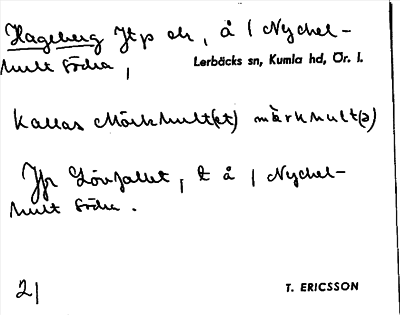 Hageberg Jtp ok, å 1 Nyckel-
hult Södra,
Lerbäcks sn, Kumla hd, Ör. l.
Kallas Mörkhult(et) mörkhult(ə)
Jfr Lövfallet, t å 1 Nyckel-
hult Södra.
21
T. ERICSSON